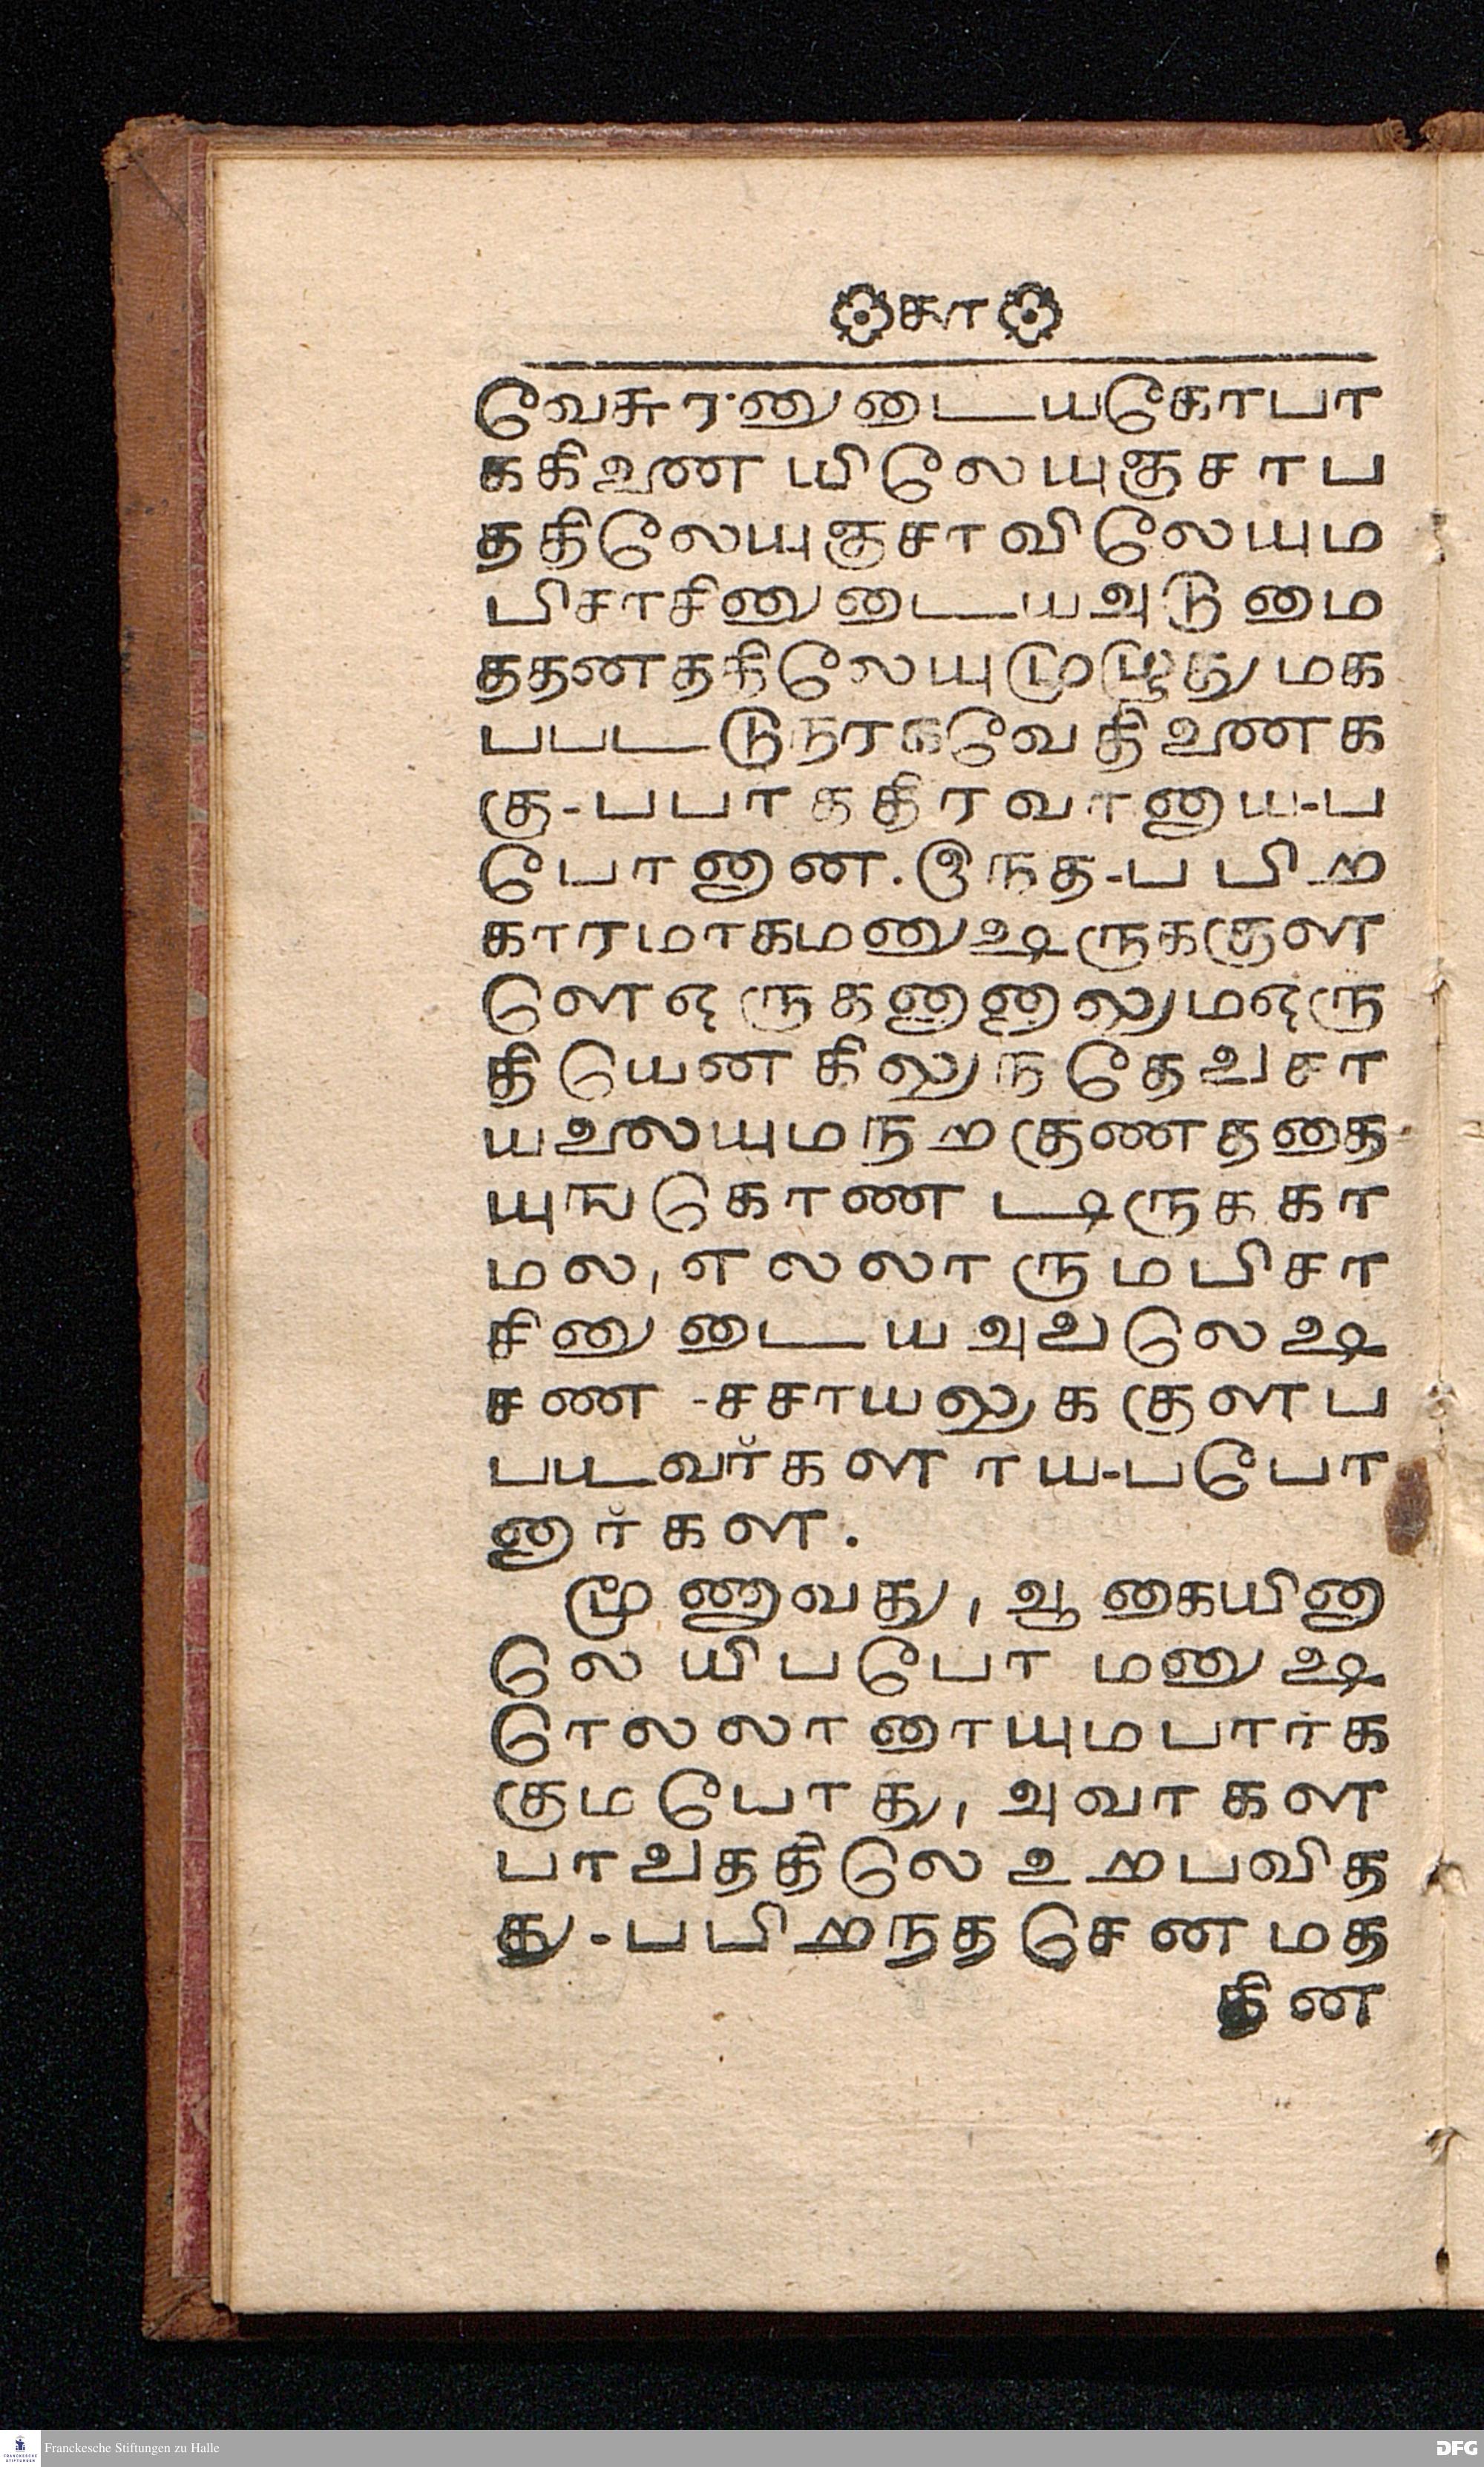 கா
வேசுரனுடையகோபா
ககினை யிலேயுஞசாப
ததிலேயுஞசாவிலேயும
பிசாசினுடையஅடுமை
ததனததிலேயுமமுழுதும‌க
பபடடுநரகவேதினைக
கு-பபாகதிரவானுய-ப
போனான. இநத-பபிற
காரமாகமனுஷருககுள
ளெஒருகனானாலுமஒரு
திடயென கிலுநதேவசா
யலையுமநறகுணததை
யுஙகொண டிருககா
மல, எலலா ருமபிசா
சினுடைய அவலெஷ
சண -சசாயலுககுளப
படவர்களாய-பபோ
னார்கள.
மூணாவது, ஆகையினா
லெ யிபபோ மனுஷ
ரெலலாரையுமபார்க
குமபோது, அவர்கள
பாவததிலெ உறபவித
து-பபிறநத செனமத
தின
Franckesche Stiftungen zu Halle
DFG